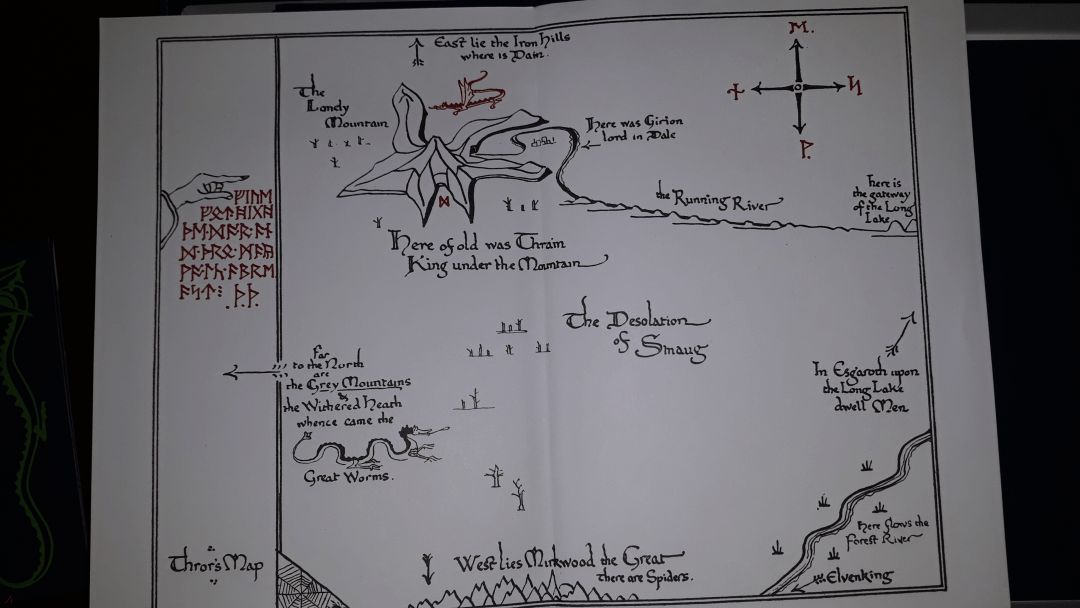 East lie the Iron Hills
where is Dain.
The
Lonely
Mountain
ᛖ.
ᚾ
ᛋ
ᚹ.
Here was Girion
lord in Dale
the Running River
here is
the gateway
of the Long
Lake
ᛞ
ᚠᛁᚢᛖ
ᚠᛟᛏ᛫ᚻᛁᚷᚻ
ᚦᛖ᛫ᛞᚩᚱ᛫ᚪᚾ
ᛞ᛫ᚦᚱᛟ᛫ᛗᚪᚣ
ᚹᚪᛚᚳ᛫ᚪᛒᚱᛖ
ᚪᛋᛏ⁝ ᚦ.ᚦ.
Here of old was Thrain
King under the Mountain
The Desolation
of Smaug
Far
to the North
are
the Grey Mountains
&
the Withered Heath
whence came the
Great Worms.
In Esgaroth upon
the Long Lake
dwell Men
here flows the
Forest River
Elvenking
West lies Mirkwood the Great
there are Spiders.
Thror's Map